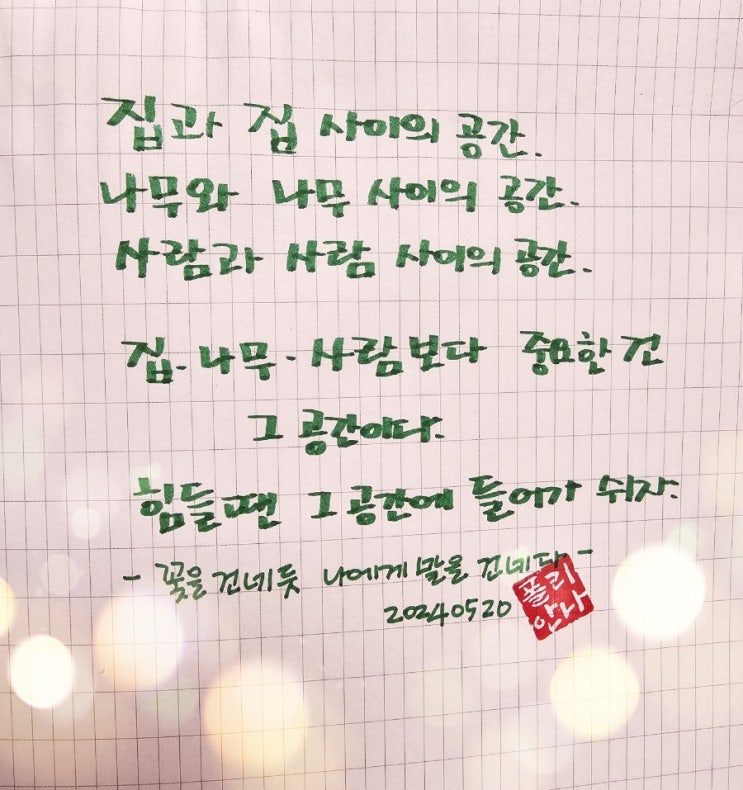 집과 집 사이의 공간.
나무와 나무 사이의 공간.
사람과 사람 사이의 공간.
집·나무·사람보다 중요한 건
그 공간이다.
힘들땐 그 공간에 들어가 쉬자.
- 꽃을 건네듯 나에게 말을 건네다 -
20240520
폴리
안나